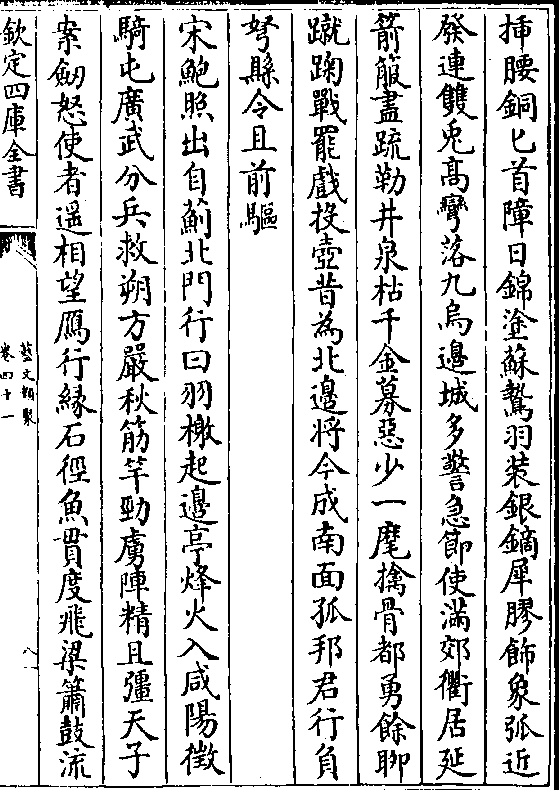 揷腰銅匕首障日錦塗蘇鷙羽装銀鏑犀膠飾象弧近
發連雙兎髙彎落九烏邉城多警急節使滿郊衢居延
箭箙盡疏勒井泉枯千金募惡少一麾擒骨都勇餘聊
蹴踘戰罷戲投壺昔為北邉將今成南面孤邦君行負
弩縣令且前驅
宋鮑照出自薊北門行曰羽檄起邉亭烽火入咸陽徴
騎屯廣武分兵救朔方嚴秋筋竿勁虜陣精且彊天子
案劒怒使者遥相望鴈行縁石徑魚貫度飛梁簫鼓流
欽定四庫全書
藝文類聚
卷四十一
八